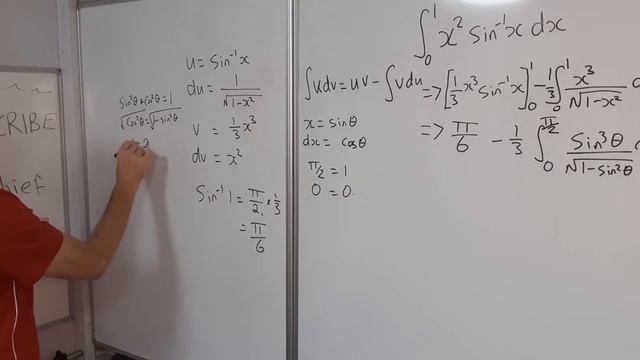 ∫₀¹ x² sin⁻¹x dx
CRIBE
hief
sin²θ + cos²θ = 1
√cos²θ = √1 - sin²θ
u = sin⁻¹x
du = 1/√1-x²
v = 1/3 x³
dv = x²
sin⁻¹ 1 = π/2 × 1/3
= π/6
∫u dv = uv - ∫v du => [1/3 x³ sin⁻¹x]₀¹ - 1/3 ∫₀¹ x³/√1-x²
x = sinθ
dx = cosθ
π/2 = 1
0 = 0.
=> π/6 - 1/3 ∫₀^(π/2) sin³θ/√1-sin²θ